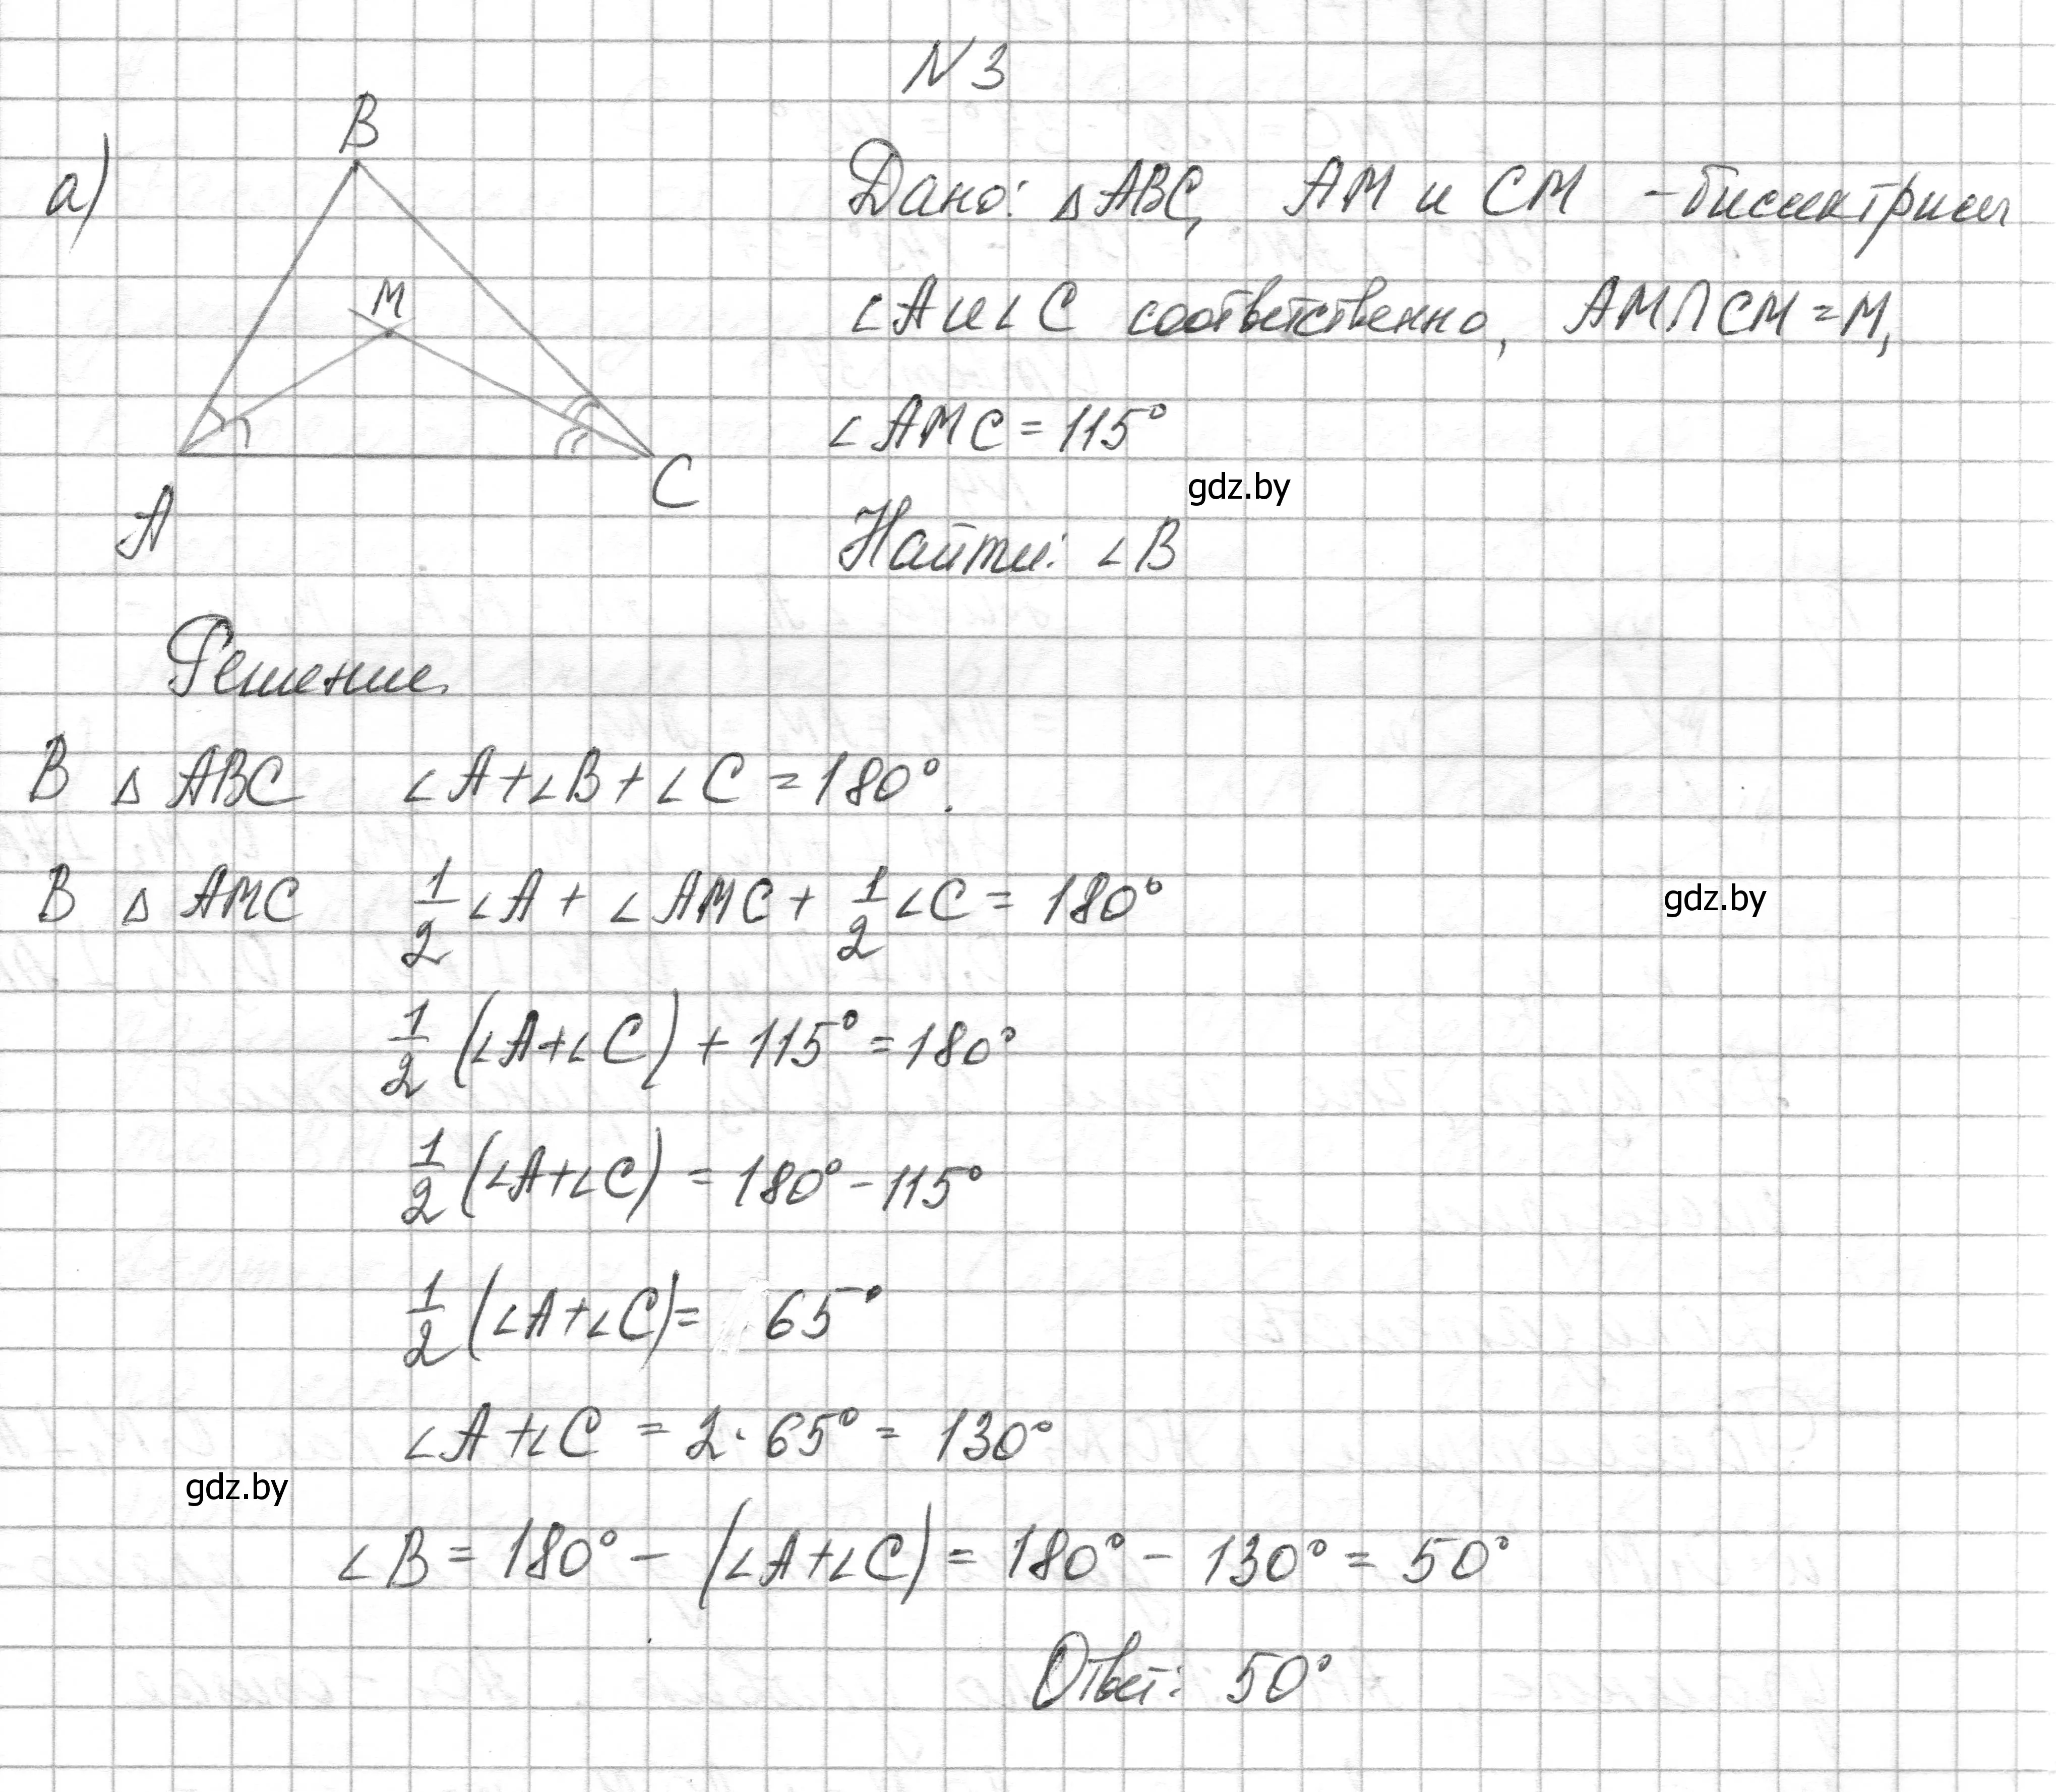 N 3
а)
B
M
A
C
Дано: △ABC, AM и CM - биссектрисы
∠A и ∠C соответственно, AM∩CM=M,
∠AMC = 115°
gdz.by
Найти: ∠B
Решение
В △ ABC ∠A+∠B+∠C=180°.
В △ AMC 1/2 ∠A + ∠AMC + 1/2 ∠C = 180°
gdz.by
1/2 (∠A+∠C) + 115° = 180°
1/2 (∠A+∠C) = 180° - 115°
1/2 (∠A+∠C) = 65°
∠A+∠C = 2·65° = 130°
gdz.by
∠B = 180° - (∠A+∠C) = 180° - 130° = 50°
Ответ: 50°